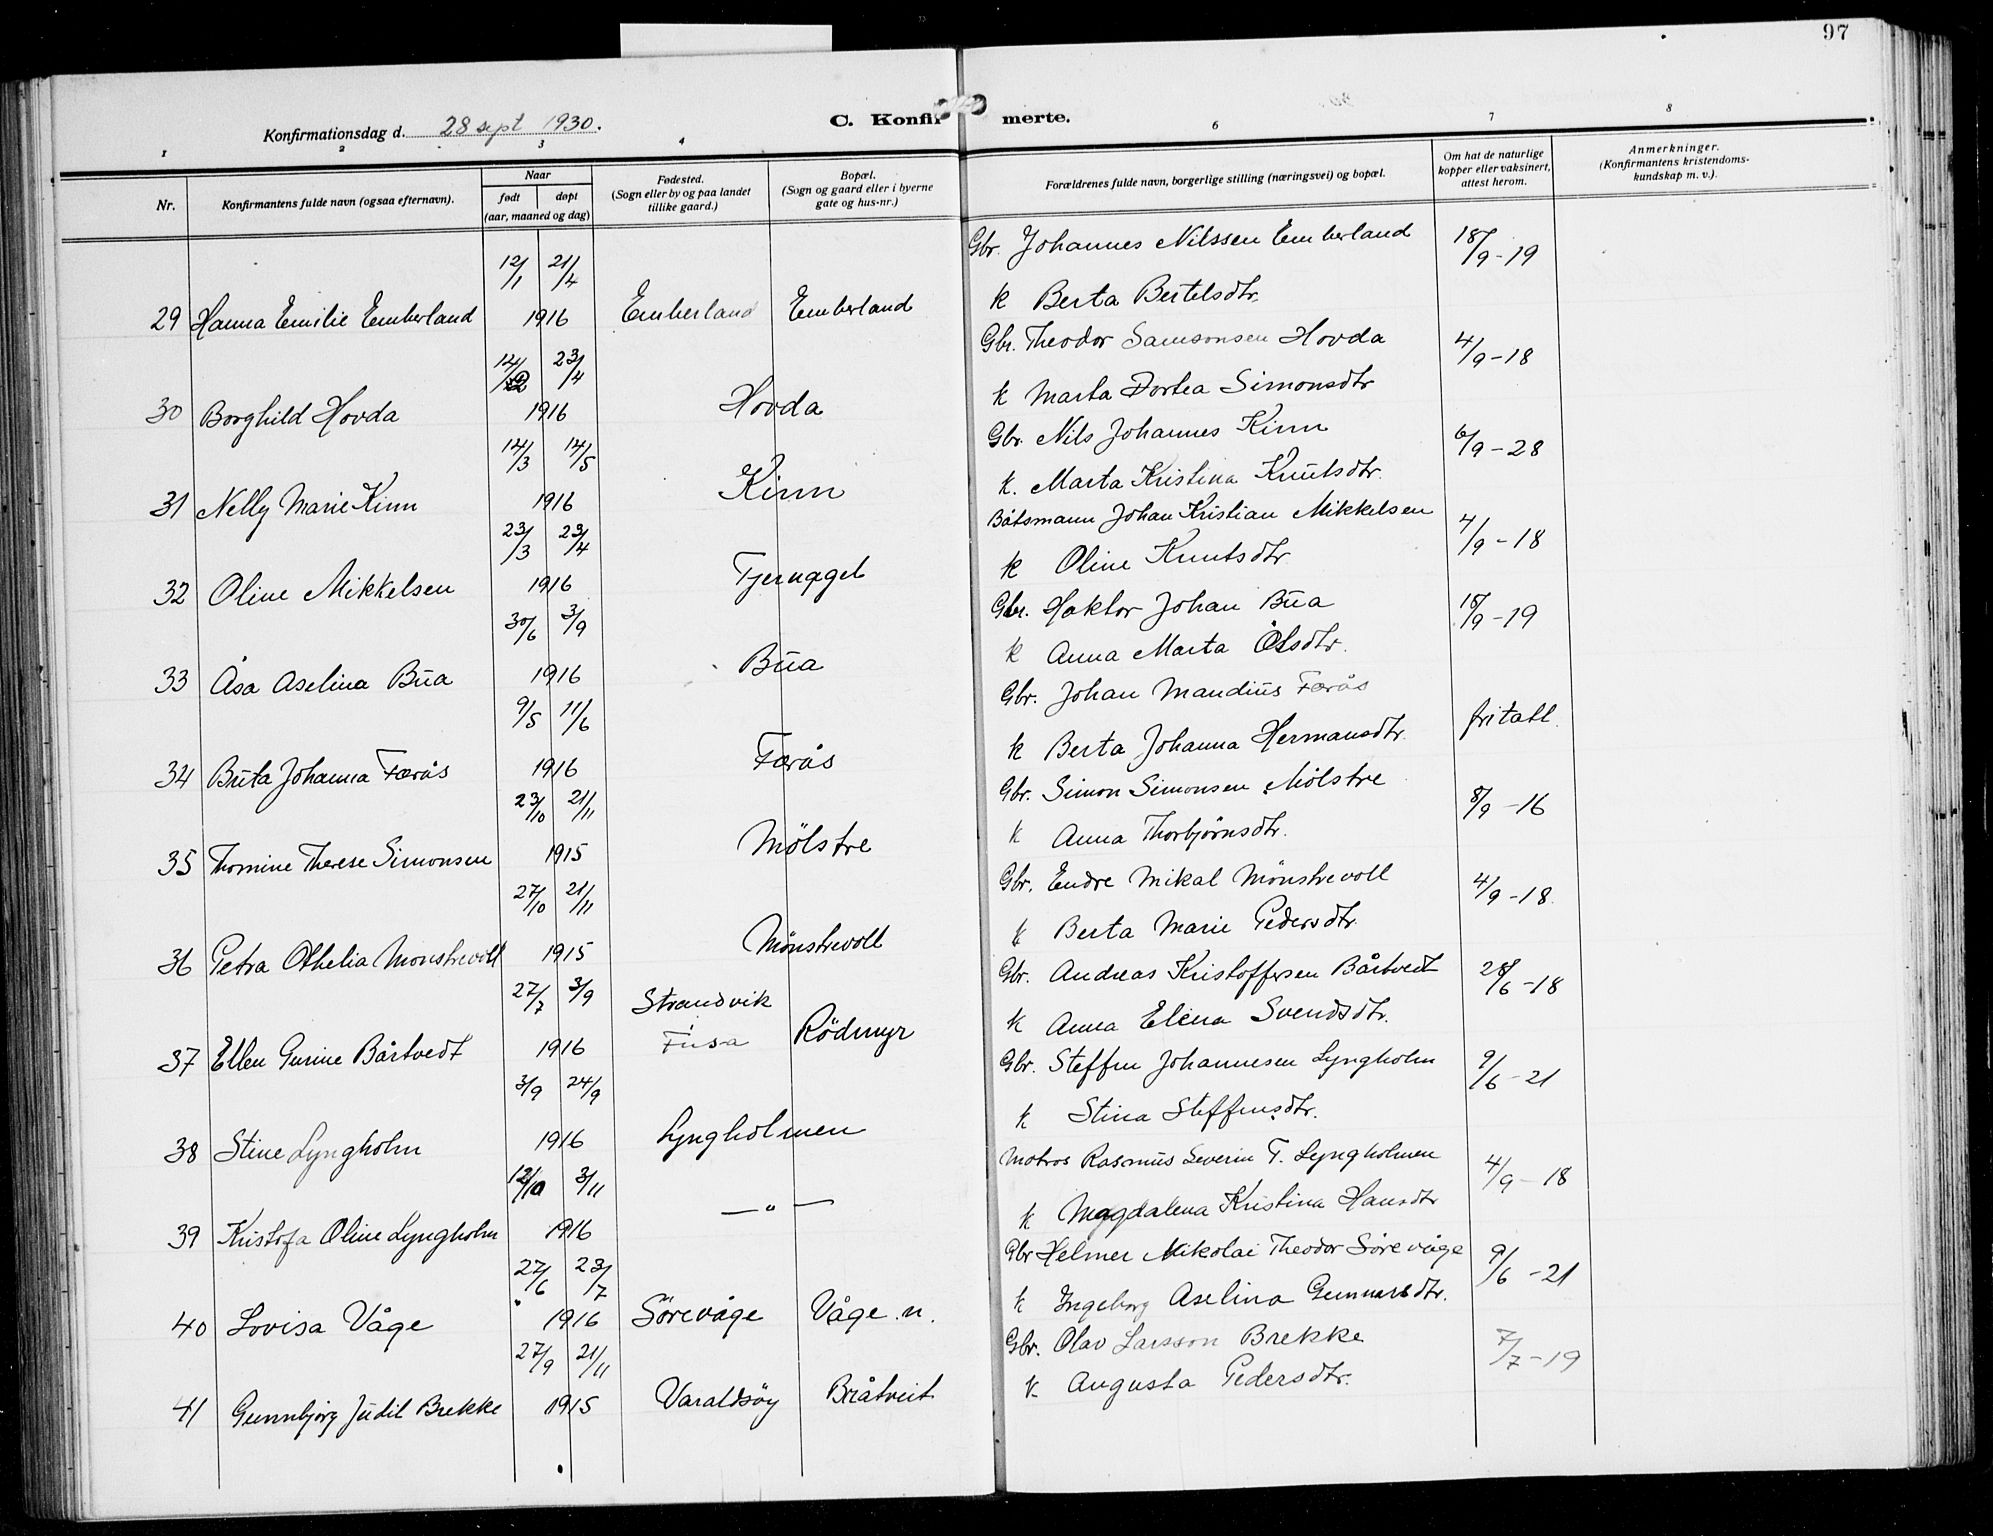 97
Konfirmationsdag d. 28 sept 1930.
C. Konfirmerte.
1 2 3 4 6 7 8
Nr.
Konfirmantens fulde navn (ogsaa efternavn).
Naar
født døpt
(aar, maaned og dag)
Fødested.
(Sogn eller by og paa landet
tillike gaard.)
Bopæl.
(Sogn og gaard eller i byerne
gate og hus-nr.)
Forældrenes fulde navn, borgerlige stilling (næringsvei) og bopæl.
Om hat de naturlige
kopper eller vaksinert,
attest herom.
Anmerkninger.
(Konfirmantens kristendoms-
kundskap m. v.).
Gbr. Johannes Nilssen Emberland 18/9-19
12/1 21/4
k Berta Bertelsdtr.
29 Hanna Emilie Emberland 1916 Emberland Emberland
Gbr. Theodor Samsonsen Hovda 4/9-18
23/4
k Marta Dortea Simonsdtr
30 Borghild Hovda 1916 Hovda
Gbr. Nils Johannes Kinn 6/9-28
14/3 14/5
k. Marta Kristina Knutsdtr.
31 Nelly Marie Kinn 1916 Kinn
Båtsmann Johan Kristian Mikkelsen 4/9-18
23/3 23/4
k Oline Knutsdtr
32 Oline Mikkelsen 1916 Tjernagel
Gbr. Haktor Johan Bua 18/9-19
30/6 3/9
k Anna Marta Olsdtr.
33 Åsa Aselina Bua 1916 Bua
Gbr. Johan Mandius Færås
9/5 11/6 fritatt.
k Berta Johanna Hermansdtr.
34 Brita Johanna Færås 1916 Færås
Gbr. Simon Simonsen Mölstre 8/9-16
23/10 21/11
k Anna Thorbjörnsdtr.
35 Thomine Therese Simonsen 1915 Mölstre
Gbr. Endre Mikal Mönstrevoll 4/9-18
27/10 21/11
k Berta Marie Pedersdtr
36 Petra Othelia Monstrevoll 1915 Mönstrevoll
Gbr. Andreas Kristoffersen Bårtvedt 28/6-18
27/7 3/9 Strandvik
k Anna Elena Svendsdtr.
37 Ellen Gurine Bårtvedt 1916 i Fusa Rödmyr
Gbr. Steffen Johannesen Lyngholm 9/6-21
3/9 24/9
k Stina Steffensdtr.
38 Stine Lyngholm 1916 Lyngholmen
Matros Rasmus Severin T. Lyngholmen 4/9-18
3/11 — " —
k Magdalena Kristina Hansdtr
39 Kristofa Oline Lyngholm 1916
Gbr Helmer Mikolai Theodor Sörevåge 9/6-21
27/6 23/7
k Ingeborg Aselina Gunnarsdtr.
40 Lovisa Våge 1916 Sörevåge Våge n.
Gbr. Olav Larsson Brekke 7/7-19
27/9 21/11
k Augusta Pedersdtr.
41 Gunnbjørg Judit Brekke 1915 Varaldsöy Bråtveit